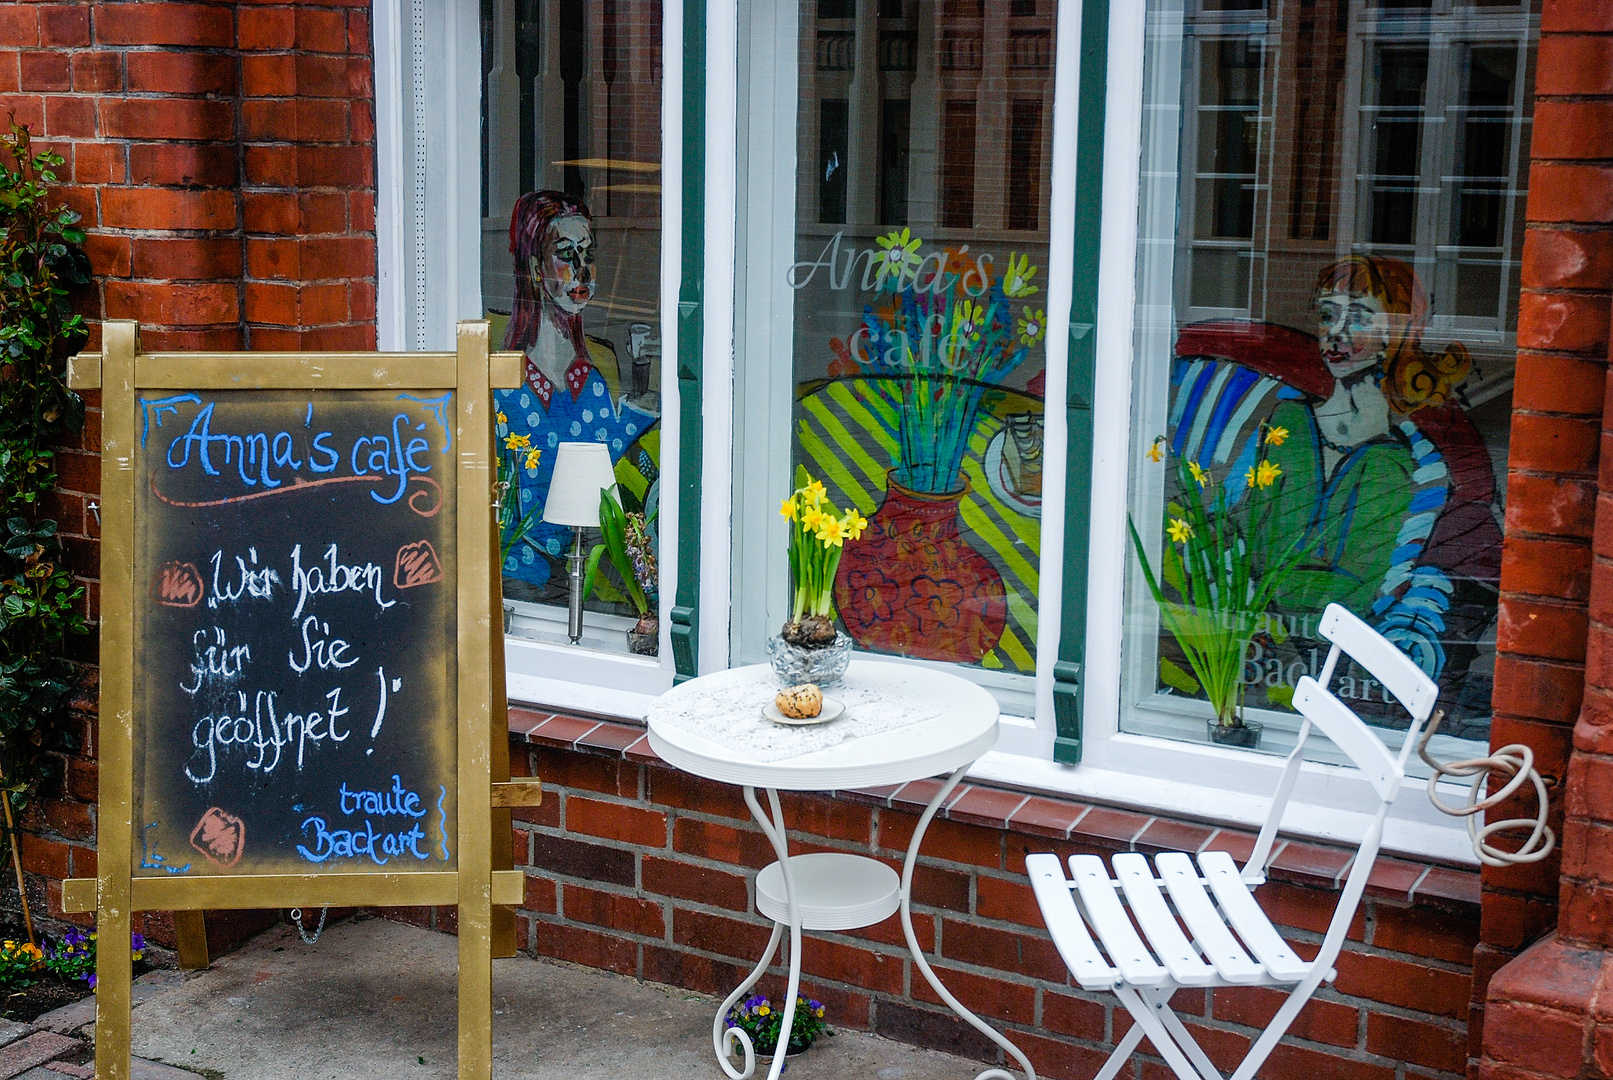 Anna's café
Wir haben
für Sie
geöffnet!
traute
Backart
Anna's
café
traute
Backart